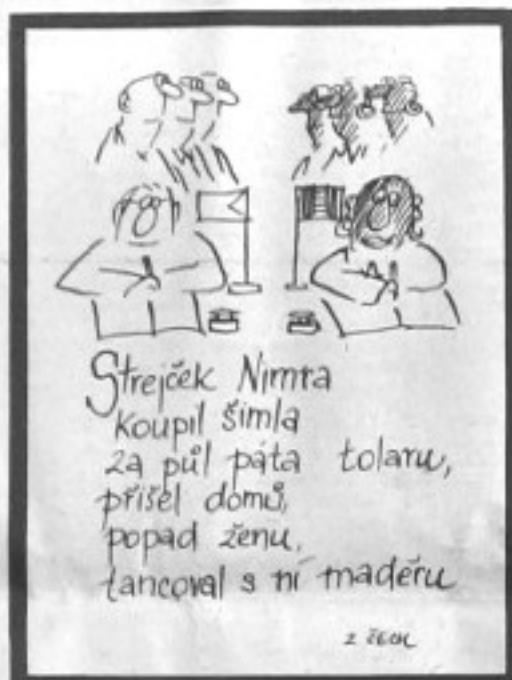 Strejček Nimra
koupil šimla
za půl páta tolaru,
přišel domů,
popad ženu,
tancoval s ní maděru
z čech